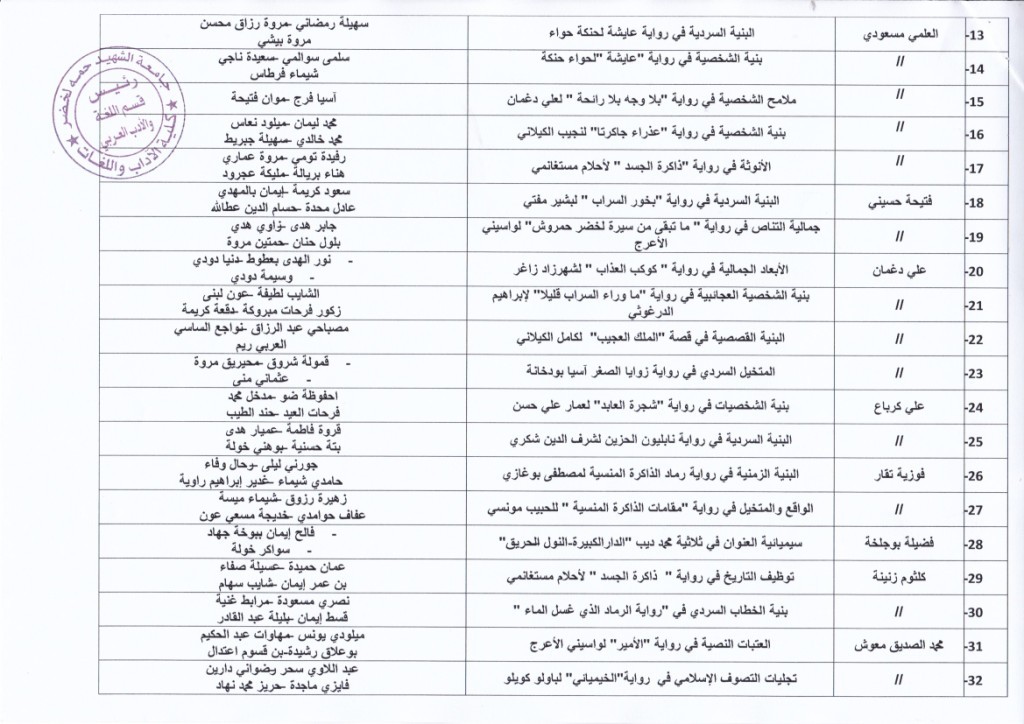 13- العلمي مسعودي البنية السردية في رواية عايشة لحنكة حواء سهيلة رمضاني -مروة رزاق محسن
مروة بيشي
14- // بنية الشخصية في رواية "عايشة "لحواء حنكة سلمى سوالمي -سعيدة ناجي
شيماء فرطاس
15- // ملامح الشخصية في رواية "بلا وجه بلا رائحة " لعلي دغمان آسيا فرج -موان فتيحة
16- // بنية الشخصية في رواية "عذراء جاكرتا" لنجيب الكيلاني محمد ليمان -ميلود نعاس
محمد خالدي -سهيلة جبريط
17- // الأنوثة في رواية "ذاكرة الجسد " لأحلام مستغانمي رفيدة تومي -مروة عماري
هناء بريالة -مليكة عجرود
18- فتيحة حسيني البنية السردية في رواية "بخور السراب " لبشير مفتي سعود كريمة -إيمان بالمهدي
عادل محدة -حسام الدين عطالله
19- // جمالية التناص في رواية " ما تبقى من سيرة لخضر حمروش" لواسيني الأعرج جابر هدى -زاوي هدي
بلول حنان -حمتين مروة
20- علي دغمان الأبعاد الجمالية في رواية " كوكب العذاب " لشهرزاد زاغر - نور الهدى بعطوط -دنيا دودي
- وسيمة دودي
21- // بنية الشخصية العجائبية في رواية "ما وراء السراب قليلا" لإبراهيم الدرغوثي الشايب لطيفة -عون لبنى
زكور فرحات مبروكة -دقعة كريمة
22- // البنية القصصية في قصة "الملك العجيب" لكامل الكيلاني مصباحي عبد الرزاق -نواجع الساسي
العربي ريم
23- // المتخيل السردي في رواية زوايا الصغر آسيا بودخانة - قمولة شروق -محيريق مروة
- عثماني منى
24- علي كرباع بنية الشخصيات في رواية "شجرة العابد" لعمار علي حسن احفوظة ضو -مدخل محمد
فرحات العيد -حند الطيب
25- // البنية السردية في رواية نابليون الحزين لشرف الدين شكري قروة فاطمة -عميار هدى
بتة حسنية -بوهني خولة
26- فوزية تقار البنية الزمنية في رواية رماد الذاكرة المنسية لمصطفى بوغازي جورني ليلى -وحال وفاء
حامدي شيماء -غدير إبراهيم راوية
27- // الواقع والمتخيل في رواية "مقامات الذاكرة المنسية " للحبيب مونسي زهيرة رزوق -شيماء ميسة
عفاف حوامدي -خديجة مسعي عون
28- فضيلة بوجلخة سيميائية العنوان في ثلاثية محمد ديب "الدارالكبيرة-النول الحريق" - فالح إيمان ببوخة جهاد
- سواكر خولة
29- كلثوم زنينة توظيف التاريخ في رواية " ذاكرة الجسد " لأحلام مستغانمي عمان حميدة -عسيلة صفاء
بن عمر إيمان -شايب سهام
30- // بنية الخطاب السردي في "رواية الرماد الذي غسل الماء " نصري مسعودة -مرابط غنية
قسط إيمان -بليلة عبد القادر
31- محمد الصديق معوش العتبات النصية في رواية "الأمير" لواسيني الأعرج ميلودي يونس -مهاوات عبد الحكيم
بوعلاق رشيدة-بن قسوم اعتدال
32- // تجليات التصوف الإسلامي في رواية"الخيميائي" لباولو كويلو عبد اللاوي سحر رضواني دارين
فايزي ماجدة -حريز محمد نهاد
جامعة الشهيد حمه لخضر
رئيس
قسم اللغة
والأدب العربي
كلية الآداب واللغات